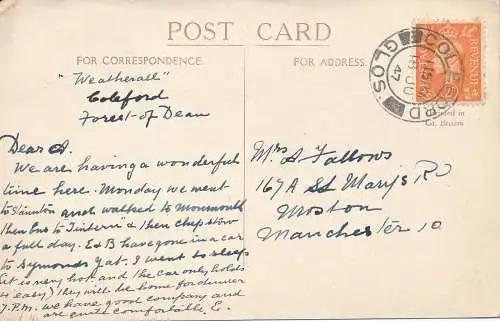 POST CARD
FOR CORRESPONDENCE.
FOR ADDRESS.
"Weatherall"
Coleford
Forest-of Dean
Dear A.
We are having a wonderful
time here. Monday we went
to Staunton and walked to Monmouth
then bus to Tintern & then Chepstow
a full day. E & B have gone in a car
to Symonds Yat. I went to sleep
(it is very hot and the car only holds
4 easy) they will be home for dinner
7. P.M. we have good company and
are quite comfortable. E.
COLEFORD
GLOS.
JU
47
REVENUE
Printed in
Gt. Britain
Mrs A Fallows
167A St Mary's Rd
Moston
Manchester 10